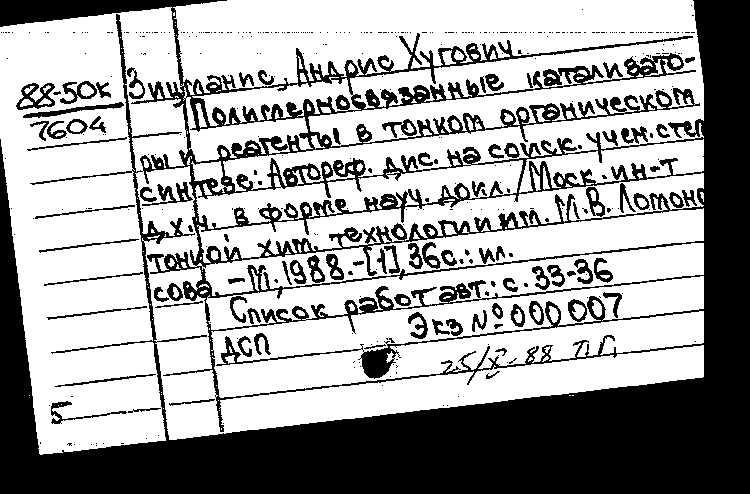 88-50к
7604
Зицманис, Андрис Хугович.
Полимерносвязанные катализато-
ры и реагенты в тонком органическом
синтезе: Автореф. дис. на соиск. учен. степ
д.х.н. в форме науч. докл. / Моск. ин-т
тонкой хим. технологии им. М.В. Ломоно
сова. - М., 1988. - [1], 36 с.: ил.
Список работ авт.: с. 33-36
Экз № 000 007
ДСП
25/X-88 П.Г.
5